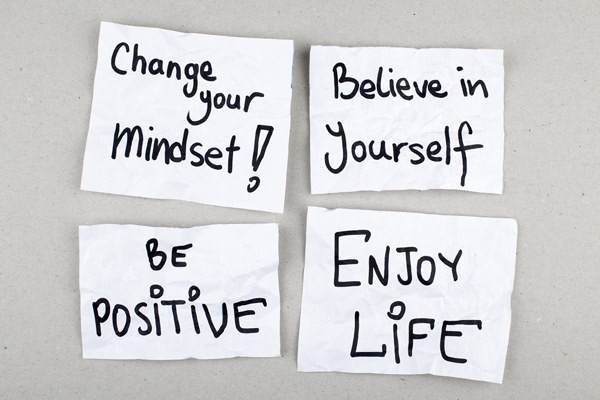 Change
your
Mindset!
Believe in
Yourself
BE
POSiTiVE
ENJOY
LiFE